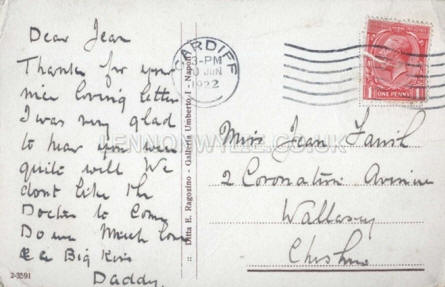 Dear Jean
Thanks for your
nice loving letter
I was very glad
to hear you were
quite well We
dont like the
Doctor to come
Down Much love
& a Big Kiss
Daddy.
2-3591
:: Ditta E. Ragozino - Galleria Umberto I - Napoli ::
CARDIFF
3-PM
JUN
1922
ONE PENNY
Miss Jean
2 Coronation Avenue
Wallasey
Cheshire
LENNONWYLIE.CO.UK